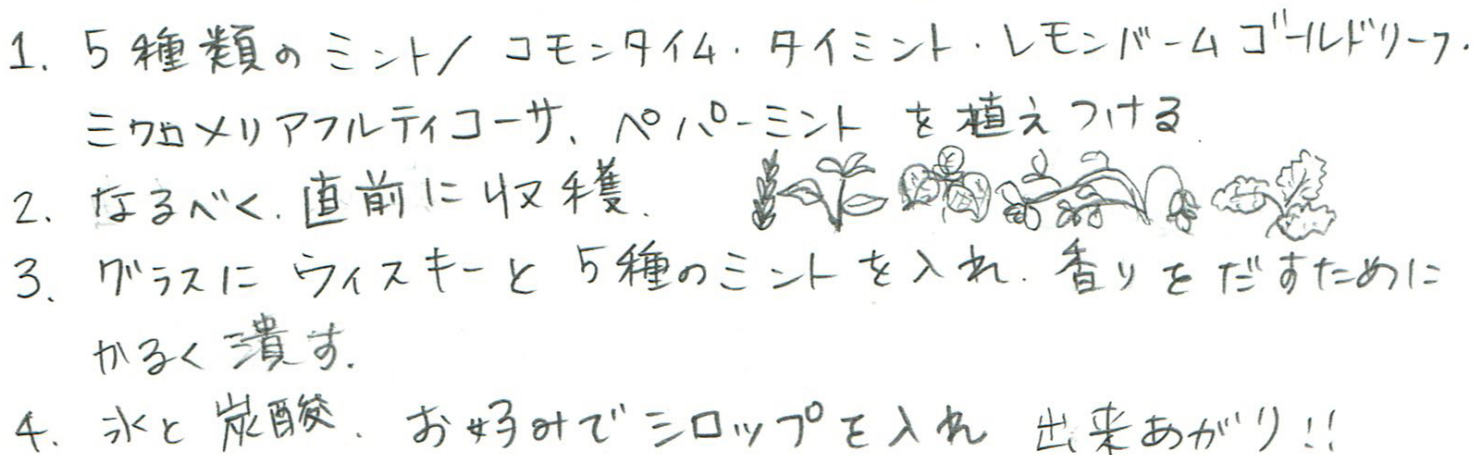 1. 5種類のミント/ コモンタイム・タイミント・レモンバームゴールドリーフ・
ミクロメリアフルティコーサ、ペパーミント を植えつける
2. なるべく、直前に収穫、
3. グラスに ウィスキーと 5種のミントを入れ、香りをだすために
かるく潰す.
4. 氷と炭酸、お好みでシロップを入れ 出来あがり!!